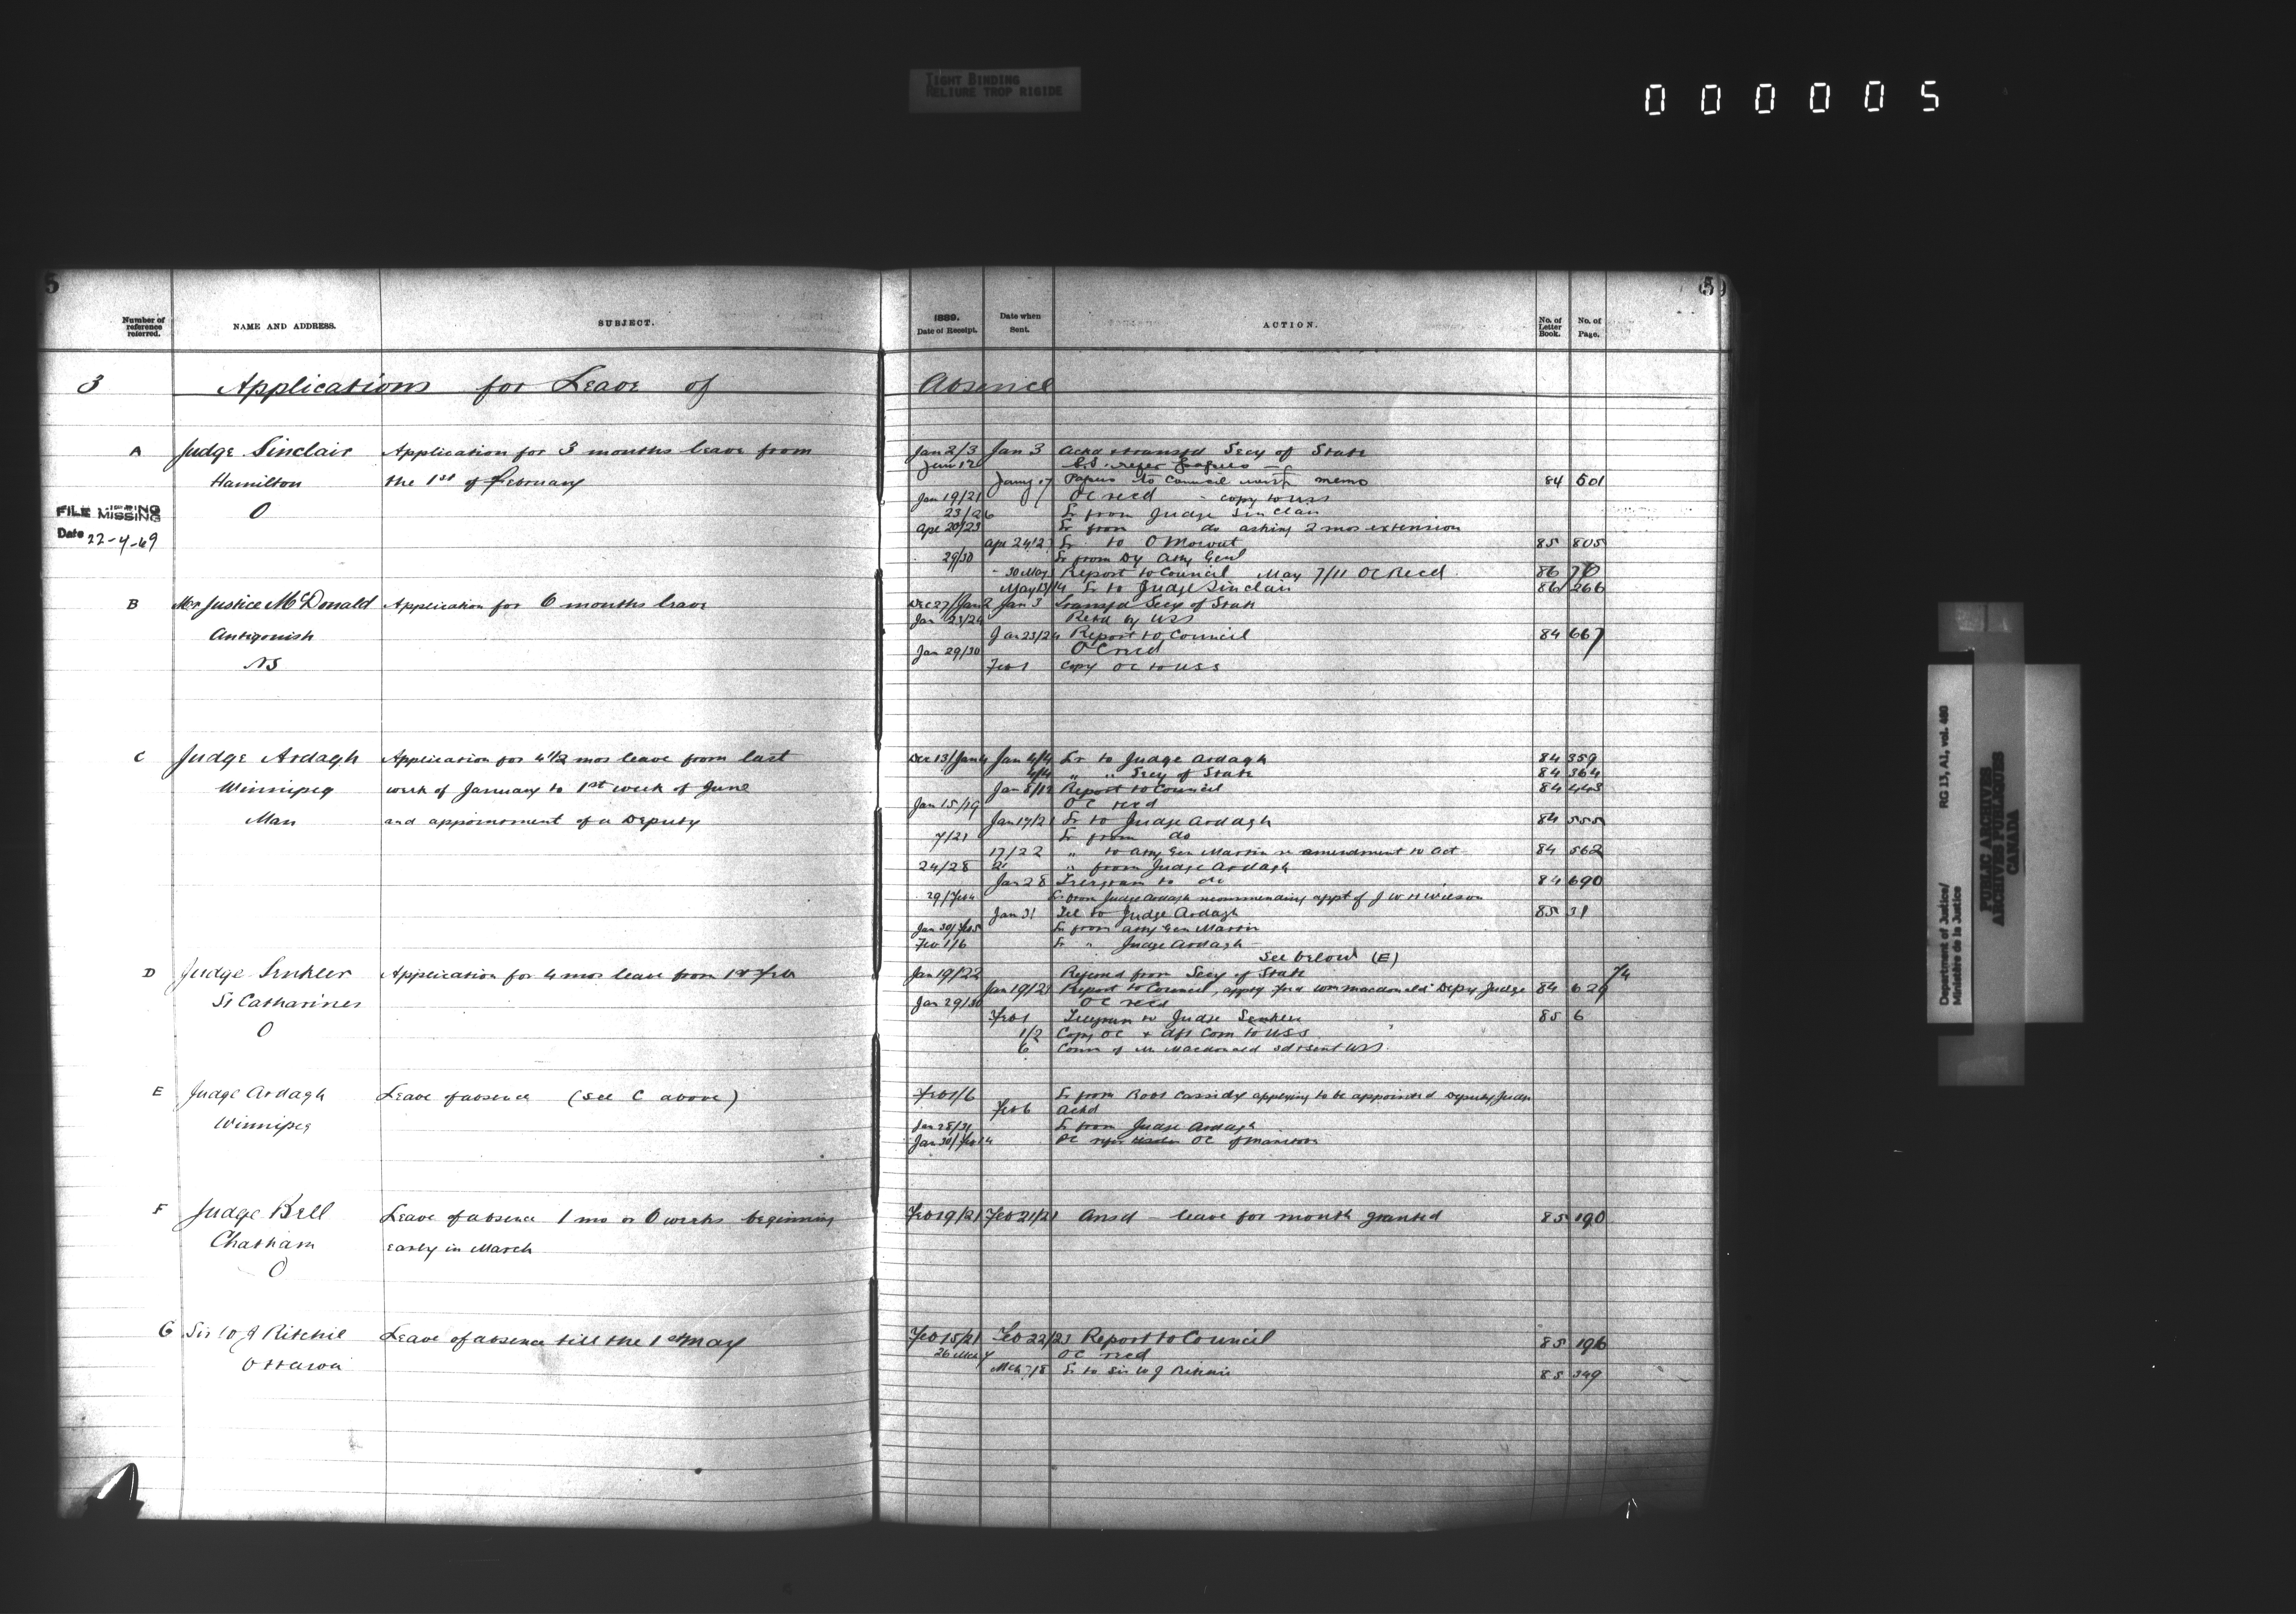 TIGHT BINDING
RELIURE TROP RIGIDE
000005
5
5
Number of reference referred.
NAME AND ADDRESS.
SUBJECT.
1889.
Date of Receipt.
Date when Sent.
ACTION.
No. of Letter Book.
No. of Page.
3 Applications for Leave of Absence
A Judge Sinclair Application for 3 months leave from Jan 2/3 Jan 3 Ackd & transfd Secy of State
Hamilton the 1st of February Jany 17 Papers to Council with memo 84 501
O Jan 19/21 OC recd - copy to USS
FILE MISSING
Date 22-4-69
23/26 Lr from Judge Sinclair
Apr 20/23 Lr from do asking 2 mos extension
Lr to O Mowat 85 805
29/30 Lr from Dy Atty Genl
30 May Report to Council May 7/11 OC Recd 86 76
May 13/14 Lr to Judge Sinclair 86 266
B Mr Justice McDonald Application for 6 months leave Dec 27/Jan 2 Jan 3 Transfd Secy of State
Jan 23/24 Retd by USS
Antigonish Jan 23/24 Report to Council 84 667
Jan 29/30 OC recd
NS Feb 1 Copy OC to USS
C Judge Ardagh Application for 4 1/2 mos leave from last Dec 13/Jan 4 Jan 4/4 Lr to Judge Ardagh 84 359
4/4 " " Secy of State 84 364
Winnipeg week of January to 1st week of June Jan 8/12 Report to Council 84 443
Jan 15/19 OC recd
Man and appointment of a Deputy Jan 19/21 Lr to Judge Ardagh 84 555
7/21 Lr from do
17/22 " to Atty Gen Martin re amendment to Act 84 562
24/28 " from Judge Ardagh
Jan 28 Telegram to do 84 690
29/Feb 4 Lr from Judge Ardagh recommending appt of J W H Wilson
Jan 31 Tel to Judge Ardagh 85 31
Jan 30/Feb 5 Lr from Atty Gen Martin
Feb 1/6 Lr " Judge Ardagh
See below (E)
D Judge Senkler Application for 4 mos leave from 1st Feb Jan 19/22 Referred from Secy of State
St Catharines Jan 19/21 Report to Council, appg Wm Macdonald Depy Judge 84 629
Jan 29/30 OC recd
O Feb 1 Telegram to Judge Senkler 85 6
1/2 Copy OC & dft Com to USS
6 Comn of Mr Macdonald sd & sent USS
E Judge Ardagh Leave of absence (see C above) Feb 1/6 Lr from Robt Cassidy applying to be appointed Deputy Judge
Feb 6 Ackd
Winnipeg Jan 28/31 Lr from Judge Ardagh
Jan 30/Feb 4 OC of Manitoba
F Judge Bell Leave of absence 1 mo or 6 weeks beginning Feb 19/21 Feb 21/21 Ansd - leave for month granted 85 190
Chatham early in March
O
G Sir W J Ritchie Leave of absence till the 1st May Feb 15/21 Feb 22/23 Report to Council 85 196
26 Mch 4 OC recd
Ottawa Mch 7/8 Lr to Sir W J Ritchie 85 349
Department of Justice/
Ministère de la Justice
RG 13, A1, vol. 480
PUBLIC ARCHIVES
ARCHIVES PUBLIQUES
CANADA